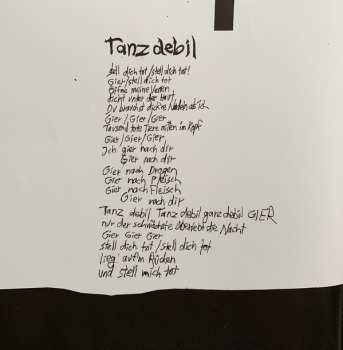 Tanz debil
stell dich tot/stell dich tot!
Gier/stell dich tot
Ritme meine Venen
dicht unter der Haut
Du brauchst dich
Gier/Gier/Gier
Tausend tote Tiere mitten im Kopf
Gier/Gier/Gier
Ich gier nach dir
Gier nach dir
Gier nach Drogen
Gier nach Fleisch
Gier nach Fleisch
Gier nach dir
Tanz debil Tanz debil ganz debil GIER
nur der schwächste überlebt die Nacht
Gier Gier Gier
stell dich tot/stell dich tot
lieg' auf'm Rücken
und stell mich tot